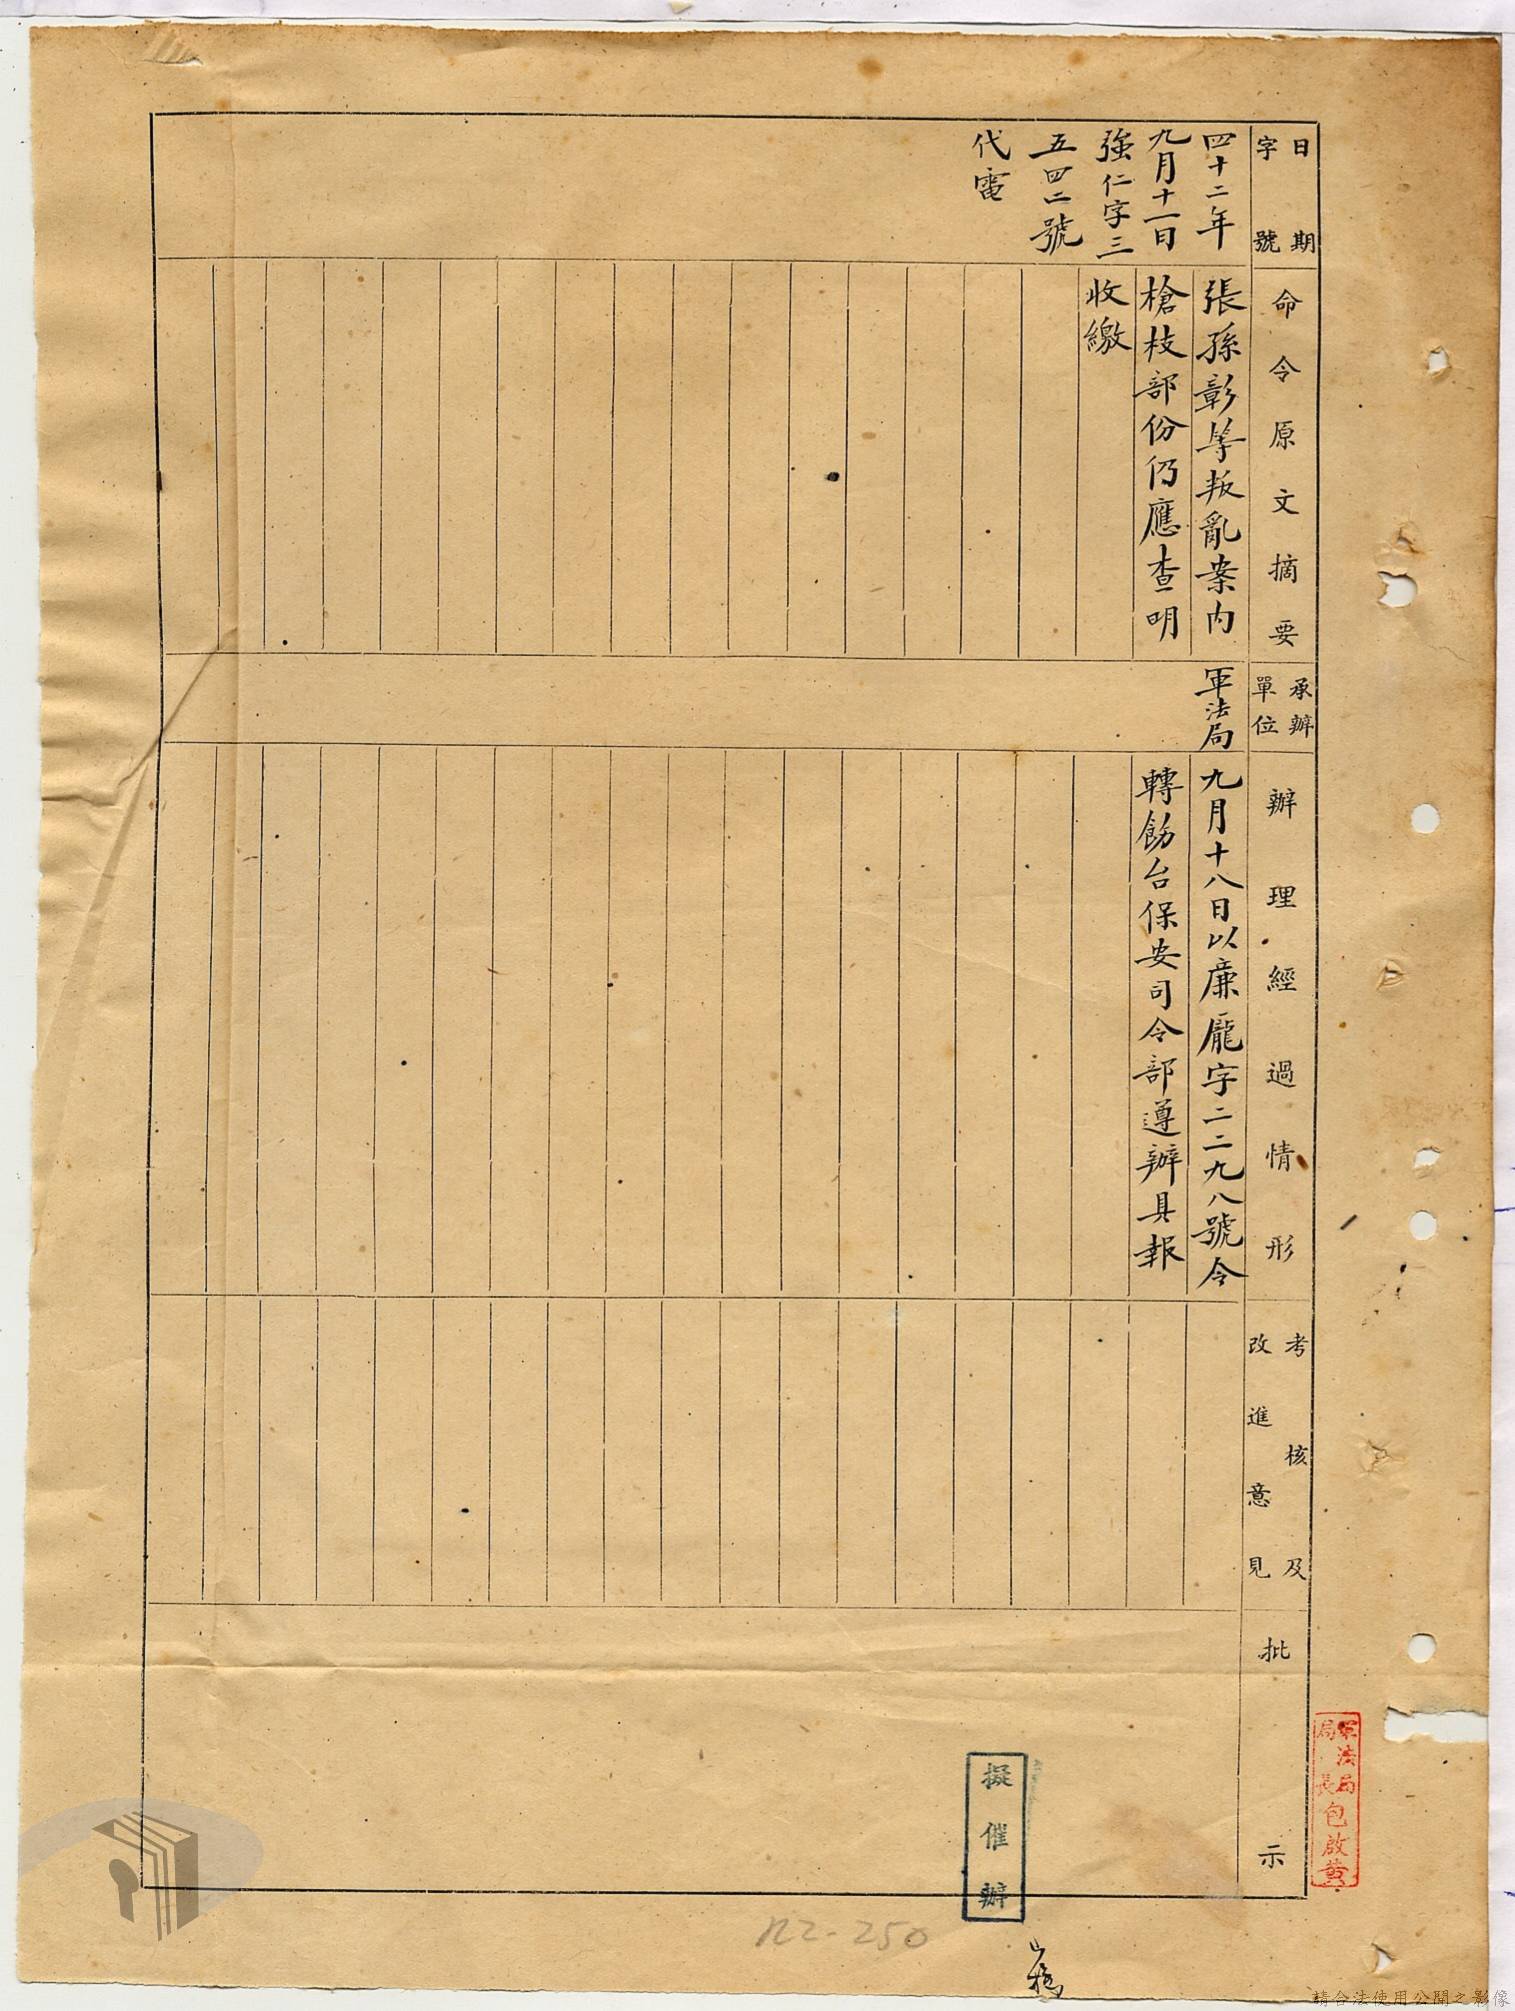 日期
字號
命令原文摘要
承辦
單位
辦理經過情形
考核及
改進意見
批示
四十二年
九月十一日
強仁字三
五四二號
代電
張孫彰等叛亂案內
槍枝部份仍應查明
收繳
軍法局
九月十八日以廉龐字二二九八號令
轉飭台保安司令部遵辦具報
軍法局
局長包啟黃
擬催辦
122-250
請合法使用公開之影像